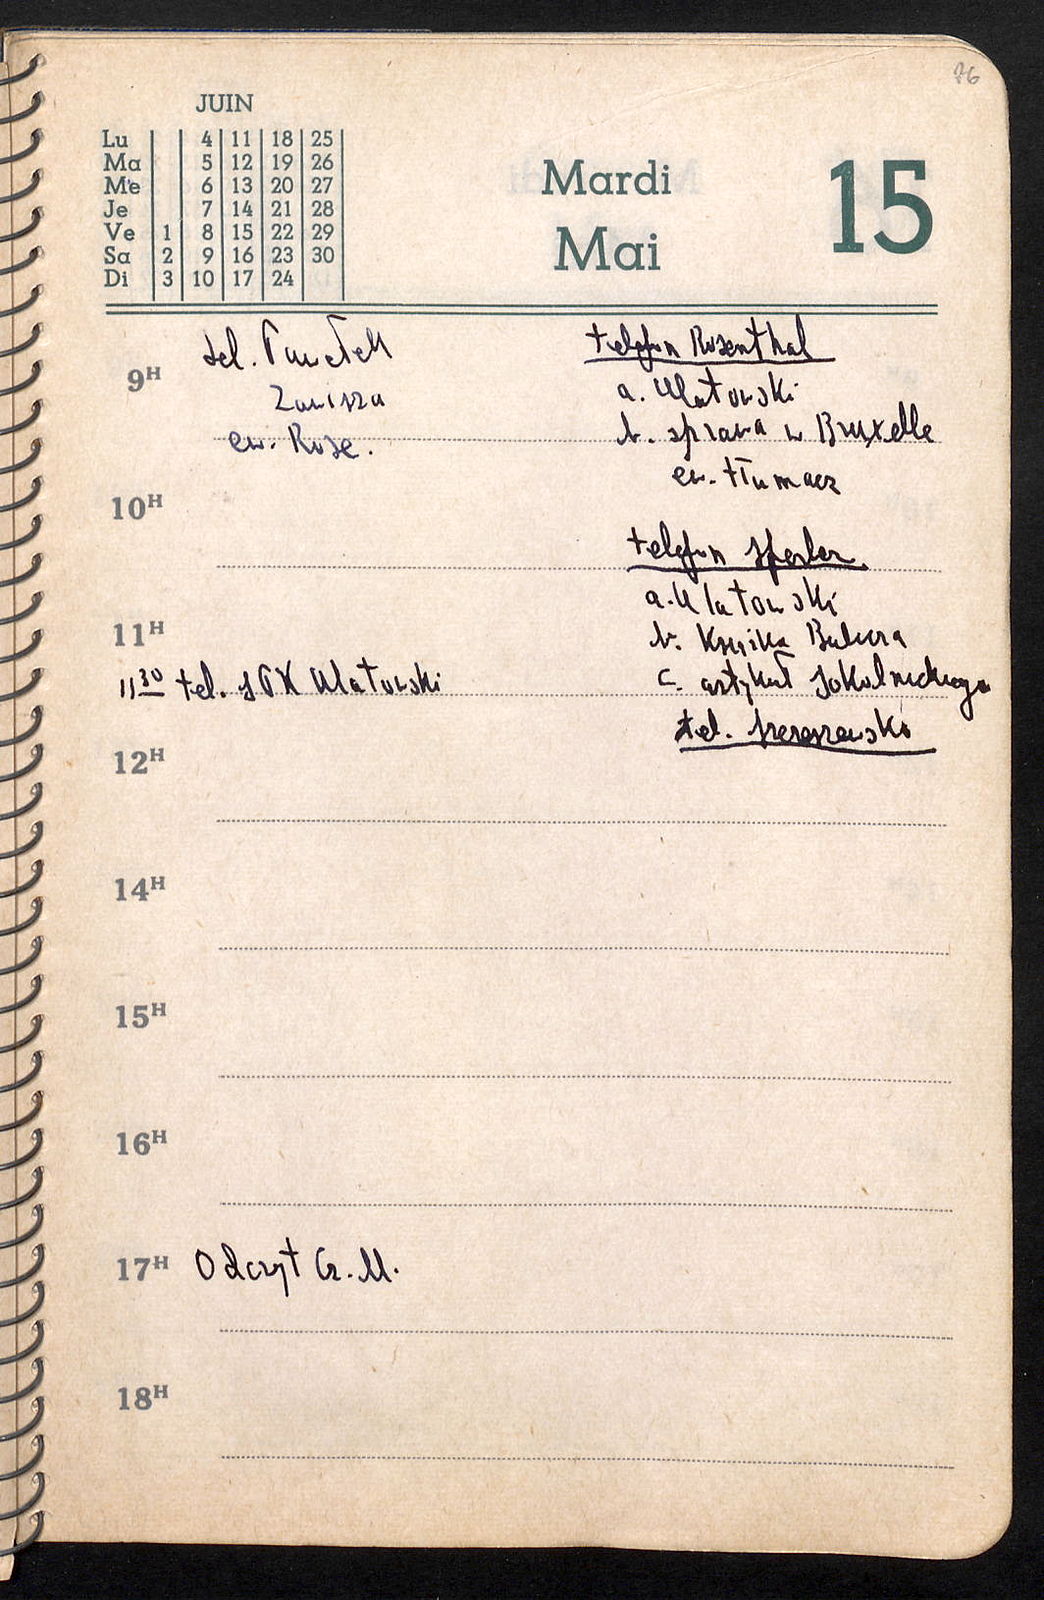 76
JUIN
Lu 4 11 18 25
Ma 5 12 19 26
Me 6 13 20 27
Je 7 14 21 28
Ve 1 8 15 22 29
Sa 2 9 16 23 30
Di 3 10 17 24
Mardi
Mai
15
9H
tel.
Zawisza
ew. Rose.
telefon Rosenthal
a. Ulatowski
b. sprawa w Bruxelle
ew. tłumacz
10H
telefon
a. Ulatowski
11H
b. Książka
11 30 tel. Ulatowski
c. artykuł Sokolnickiego
tel.
12H
14H
15H
16H
17H Odczyt Cz. M.
18H